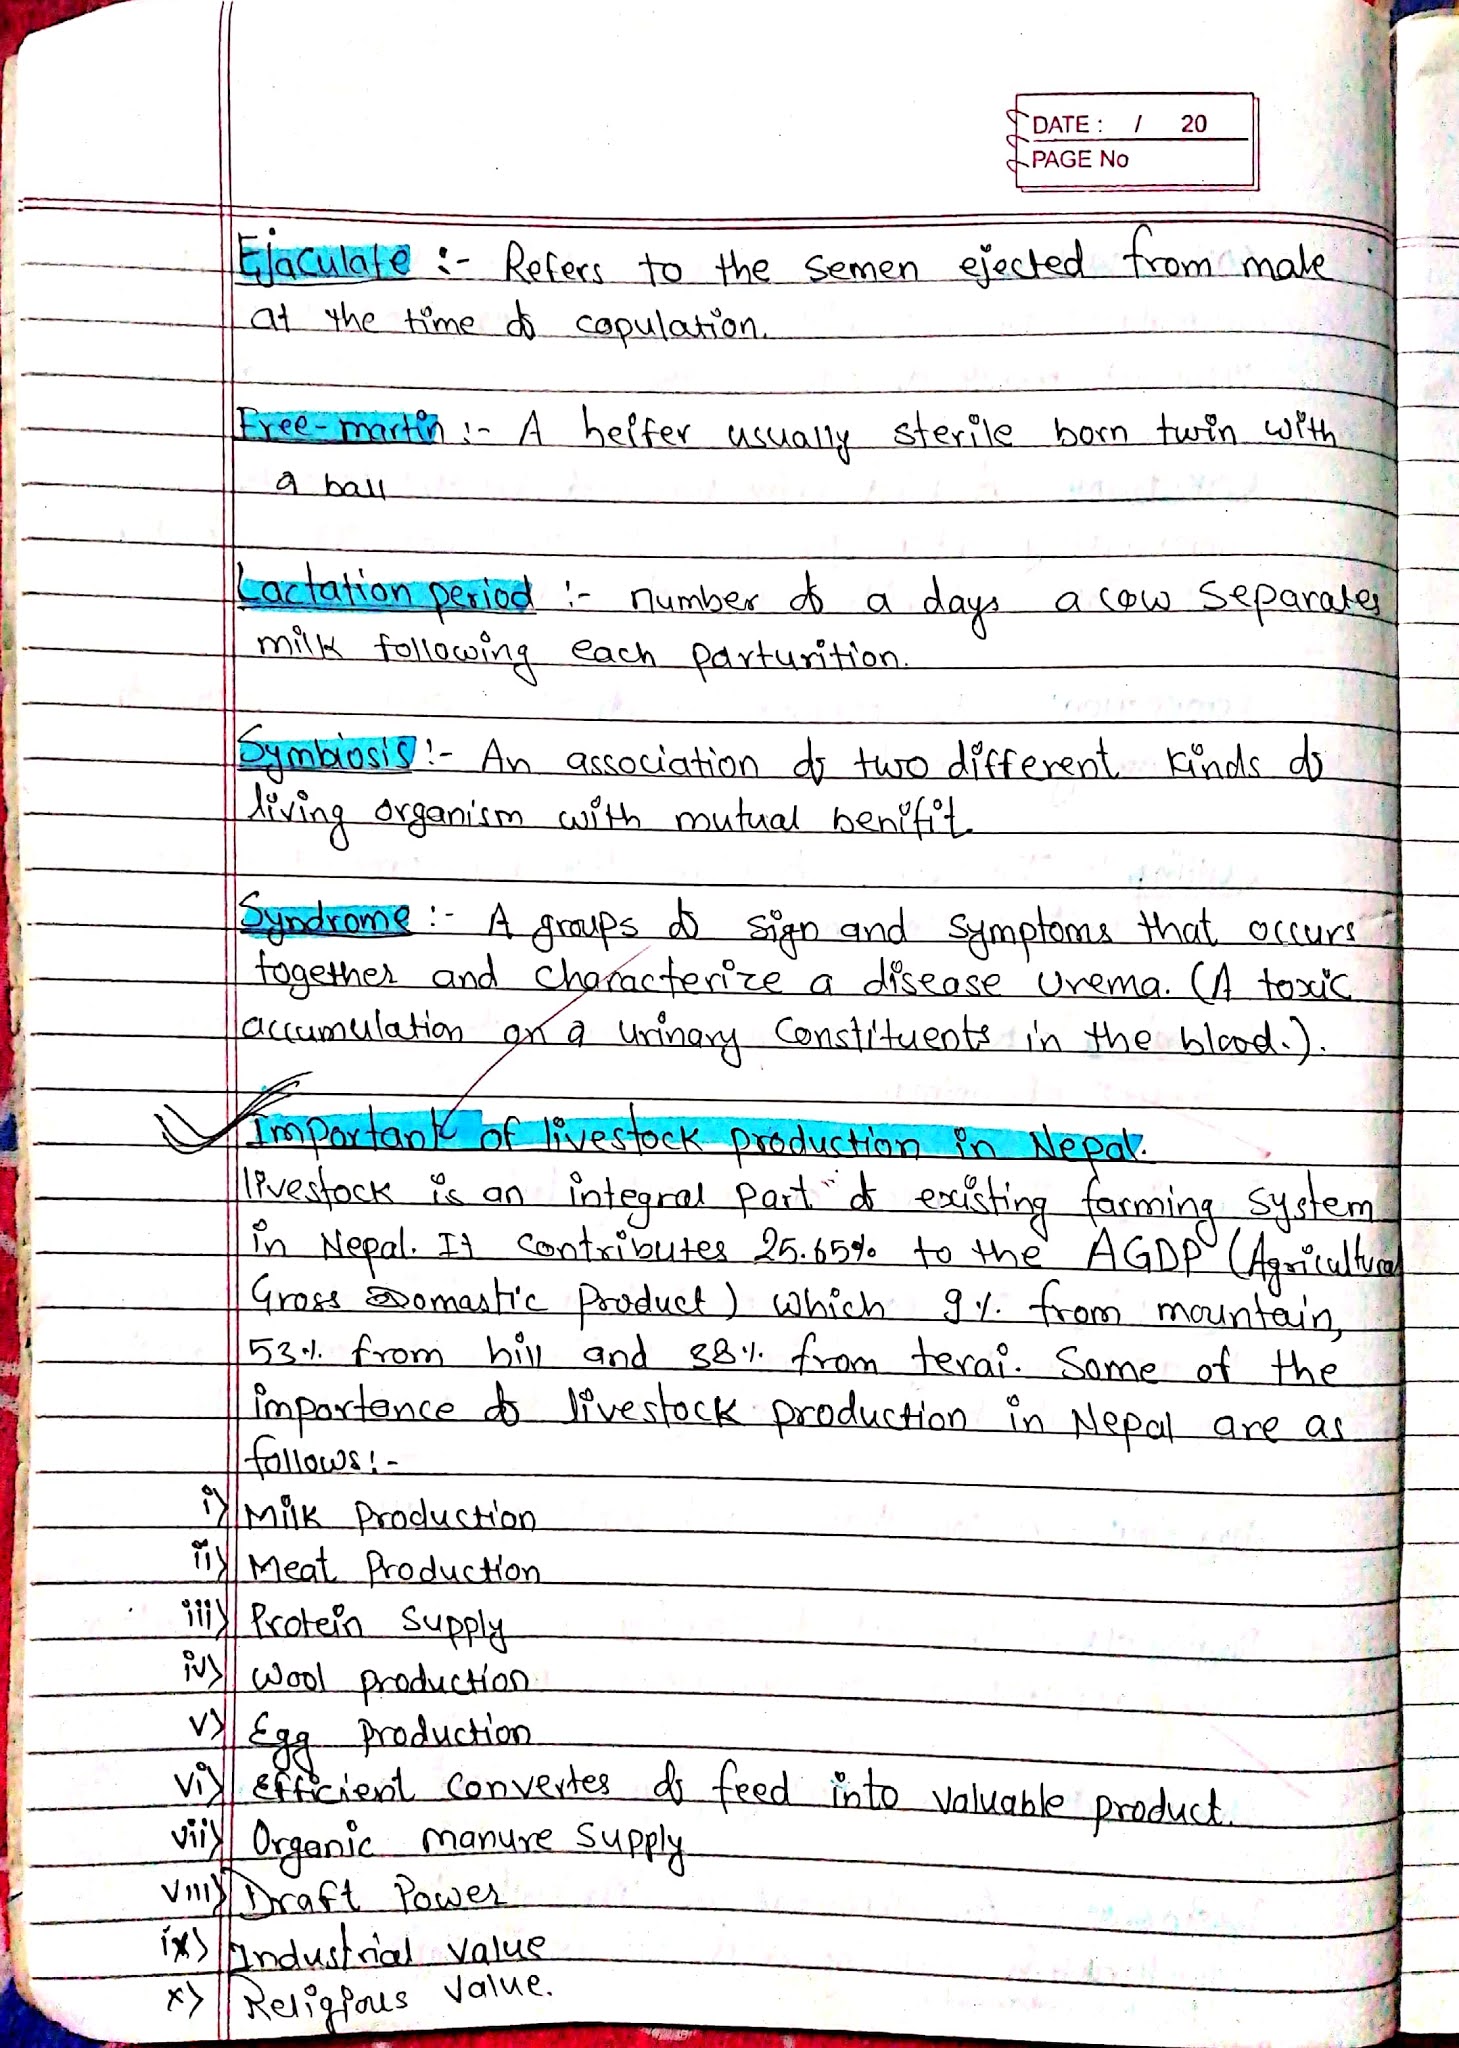 DATE : / 20
PAGE No
Ejaculate :- Refers to the semen ejected from male
at the time of copulation.
Free-martin :- A heifer usually sterile born twin with
a ball
Lactation period :- number of a days a cow separates
milk following each parturition.
Symbiosis :- An association of two different kinds of
living organism with mutual benifit.
Syndrome :- A groups of sign and symptoms that occurs
together and characterize a disease urema. (A toxic
accumulation on a urinary constituents in the blood.).
Important of livestock production in Nepal.
livestock is an integral part of existing farming system
in Nepal. It contributes 25.65% to the AGDP (Agricultural
Gross Domastic Product) which 9% from mountain,
53% from hill and 38% from terai. Some of the
importance of livestock production in Nepal are as
follows:-
i) Milk Production
ii) Meat Production
iii) Protein Supply
iv) Wool production
v) Egg production
vi) Efficient convertes of feed into valuable product.
vii) Organic manure supply
viii) Draft Power
ix) Industrial value
x) Religious value.